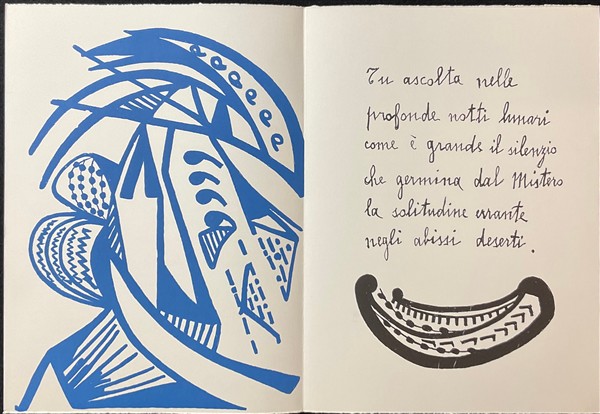 Tu ascolta nelle
profonde notti lunari
come è grande il silenzio
che germina dal Mistero
la solitudine errante
negli abissi deserti.